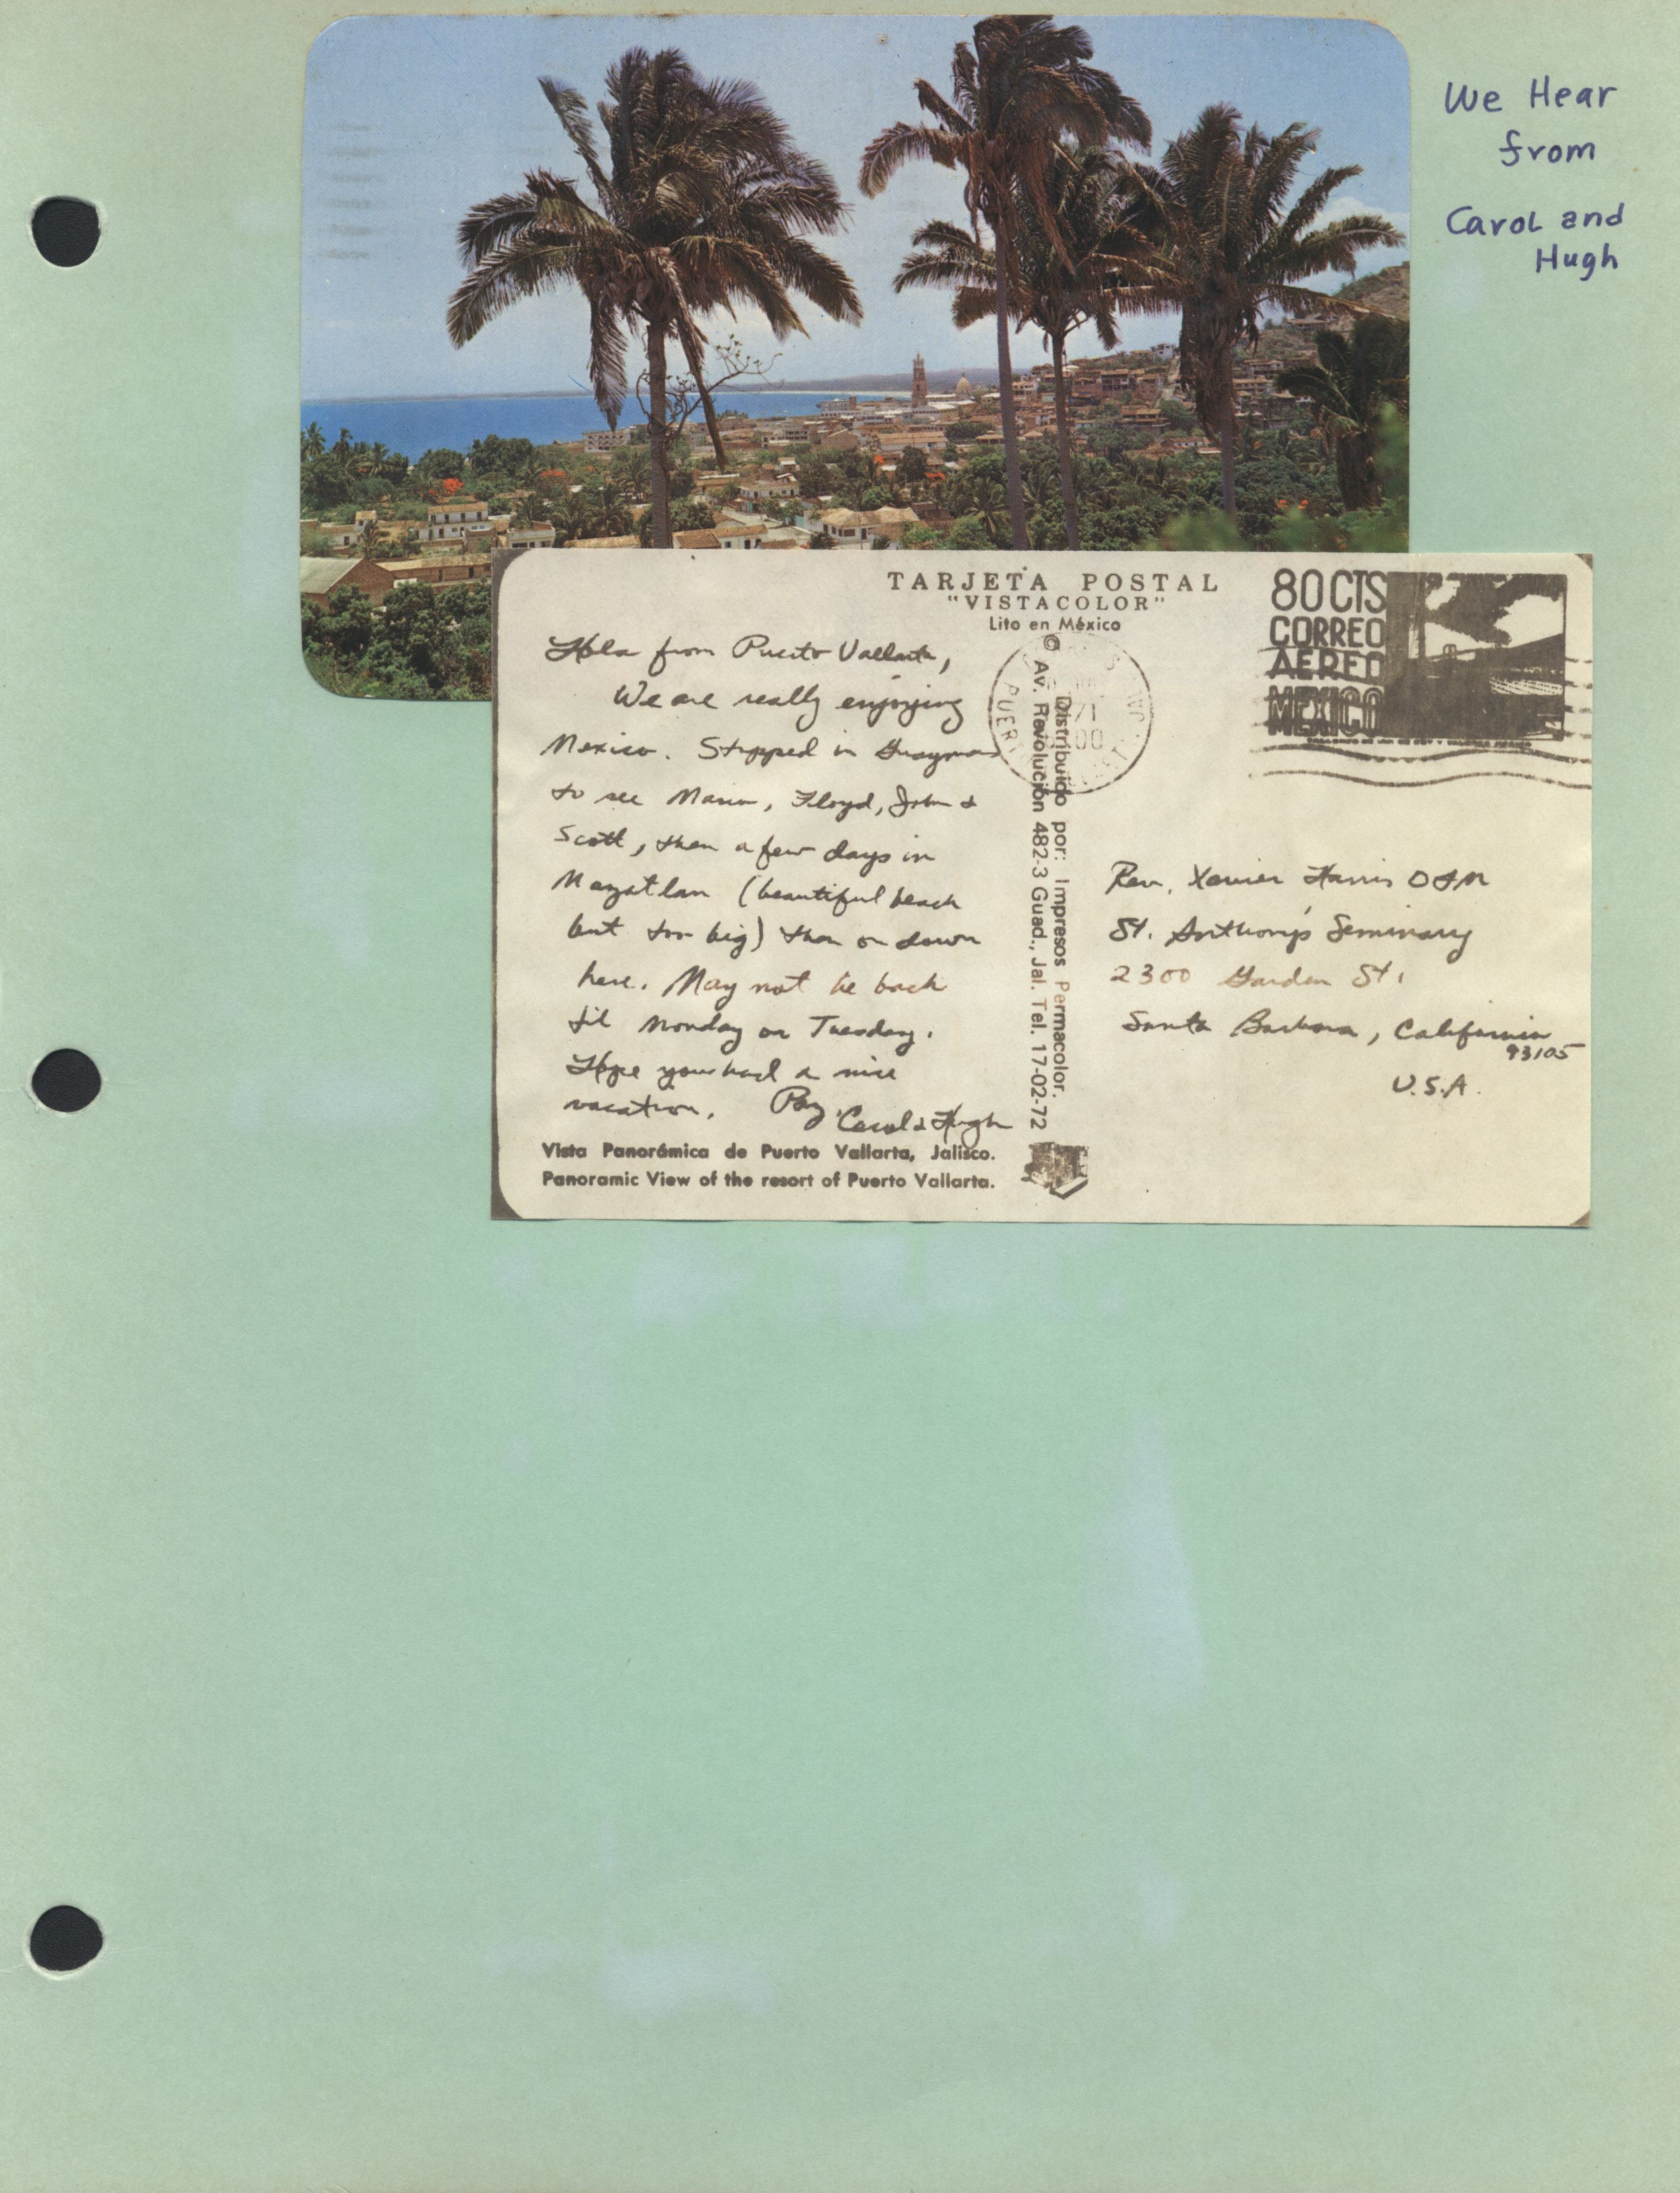 We Hear
from
Carol and
Hugh
TARJETA POSTAL
"VISTACOLOR"
Lito en México
80 CTS
CORREO
AEREO
MEXICO
Hola from Puerto Vallarta,
We are really enjoying
Mexico. Stopped in Guaymas
to see Mario, Floyd, John &
Scott, then a few days in
Mazatlan (beautiful beach
but too big) then on down
here. May not be back
til Monday or Tuesday.
Hope you had a nice
vacation. Paz,
Carol & Hugh
Vista Panorámica de Puerto Vallarta, Jalisco.
Panoramic View of the resort of Puerto Vallarta.
Distribuido por: Impresos Permacolor.
© Av. Revolución 482-3 Guad., Jal. Tel. 17-02-72
Rev. Xavier Harris OFM
St. Anthony's Seminary
2300 Garden St.
Santa Barbara, California
93105
U.S.A.